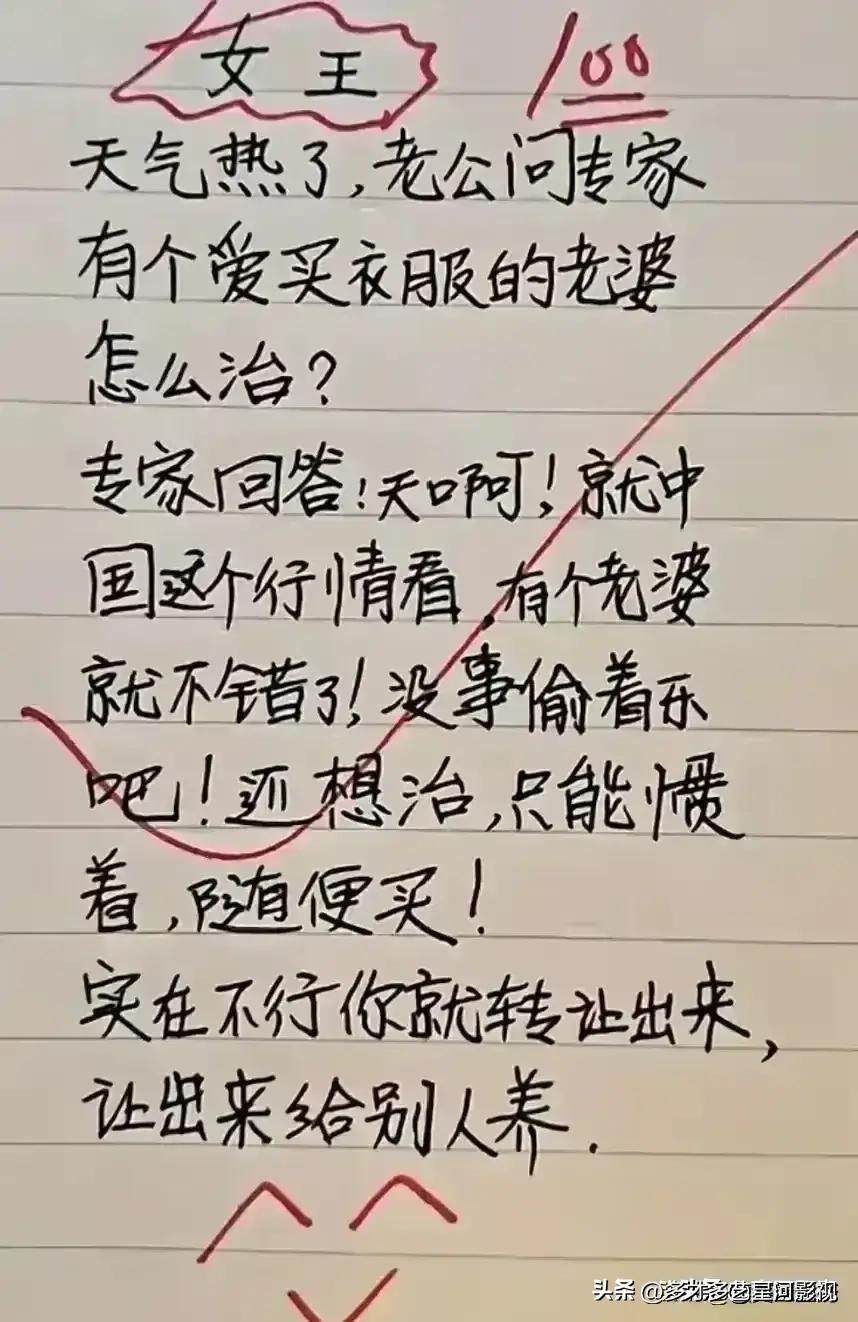 女王 100
天气热了,老公问专家
有个爱买衣服的老婆
怎么治?
专家回答!天啊!就中
国这个行情看,有个老婆
就不错了!没事偷着乐
吧!还想治,只能惯
着,随便买!
实在不行你就转让出来,
让出来给别人养.
头条